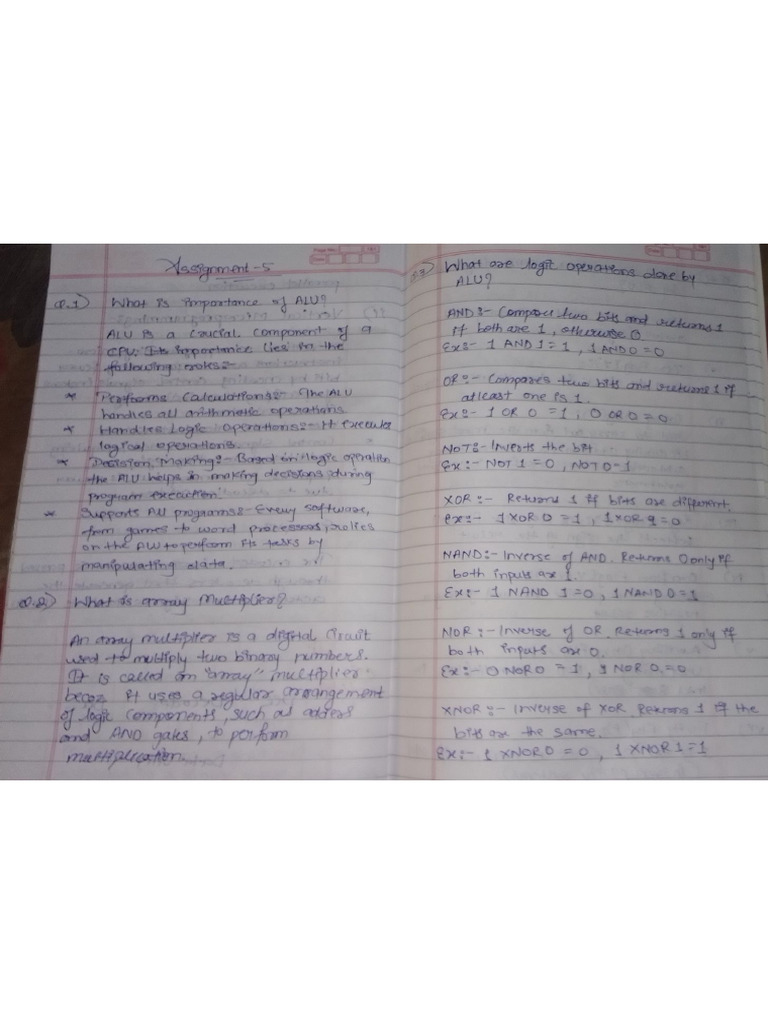 Assignment-5
Q.1) What is importance of ALU?
ALU is a crucial component of a
CPU. Its importance lies in the
following roles:-
* Performs Calculations:- The ALU
handles all arithmetic operations
* Handles Logic Operations:- It executes
logical operations.
* Decision Making:- Based on logic operation
the ALU helps in making decisions during
program execution.
* Supports All programs:- Every software,
from games to word processors, relies
on the ALU to perform its tasks by
manipulating data.
Q.2) What is array Multiplier?
An array multiplier is a digital Circuit
used to multiply two binary numbers.
It is called an "array" multiplier
becoz it uses a regular arrangement
of logic components, such as adders
and AND gates, to perform
multiplication
Q.3) What are logic operations done by
ALU?
AND:- Compares two bits and returns 1
if both are 1, otherwise 0
Ex:- 1 AND 1 = 1, 1 AND 0 = 0
OR:- Compares two bits and returns 1 if
at least one is 1.
Ex:- 1 OR 0 = 1, 0 OR 0 = 0.
NOT:- Inverts the bit
Ex:- NOT 1 = 0, NOT 0-1
XOR:- Returns 1 if bits are different.
ex:- 1 XOR 0 = 1, 1 XOR = 0
NAND:- Inverse of AND. Returns 0 only if
both inputs are 1.
Ex:- 1 NAND 1 = 0, 1 NAND 0 = 1
NOR:- Inverse of OR. Returns 1 only if
both inputs are 0.
Ex:- 0 NOR 0 = 1, 1 NOR 0 = 0
XNOR:- Inverse of XOR. Returns 1 if the
bits are the same.
Ex:- 1 XNOR 0 = 0, 1 XNOR 1 = 1